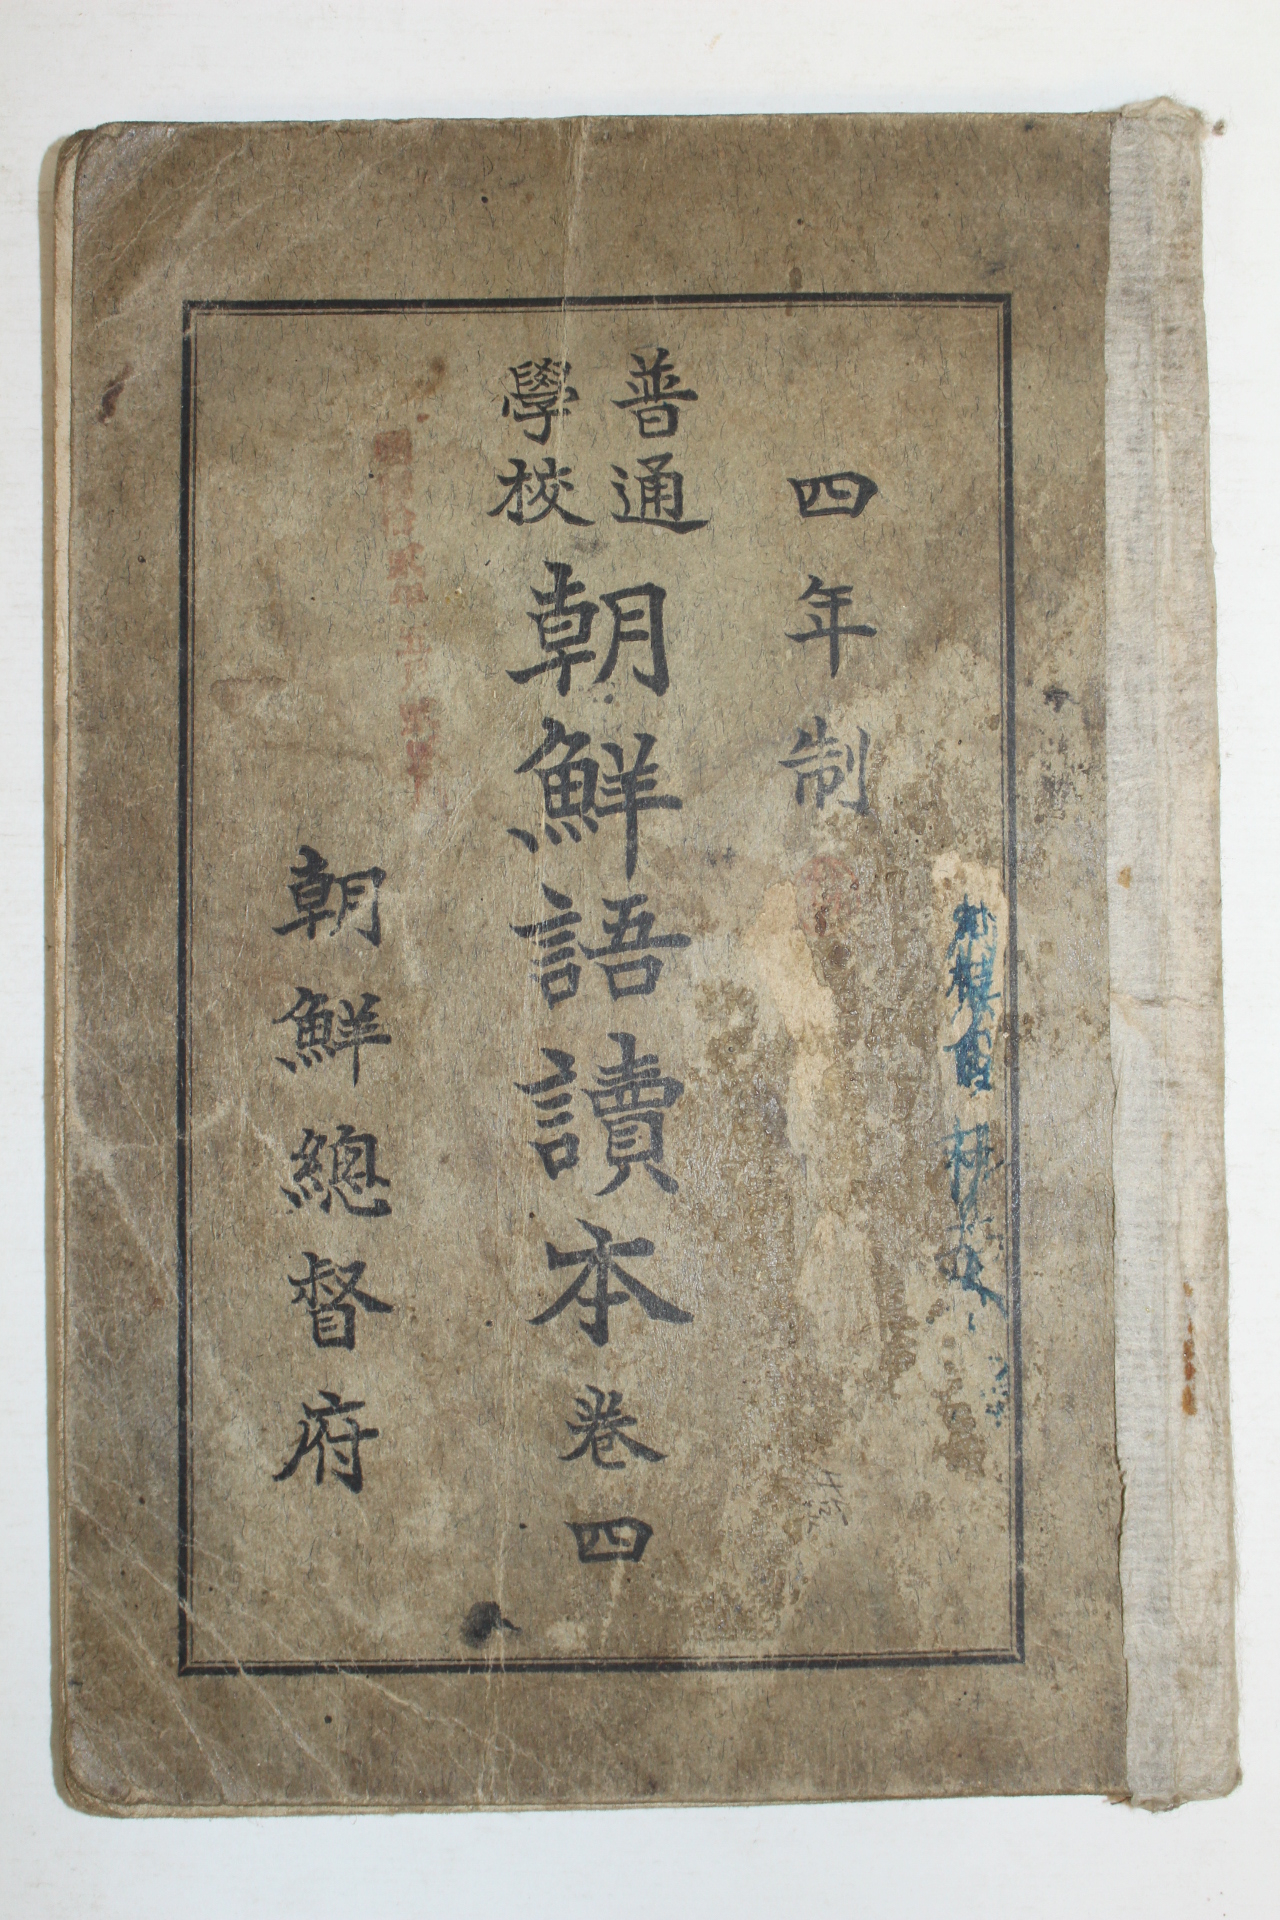 四年制
普通
學校
朝鮮語讀本 卷四
朝鮮總督府